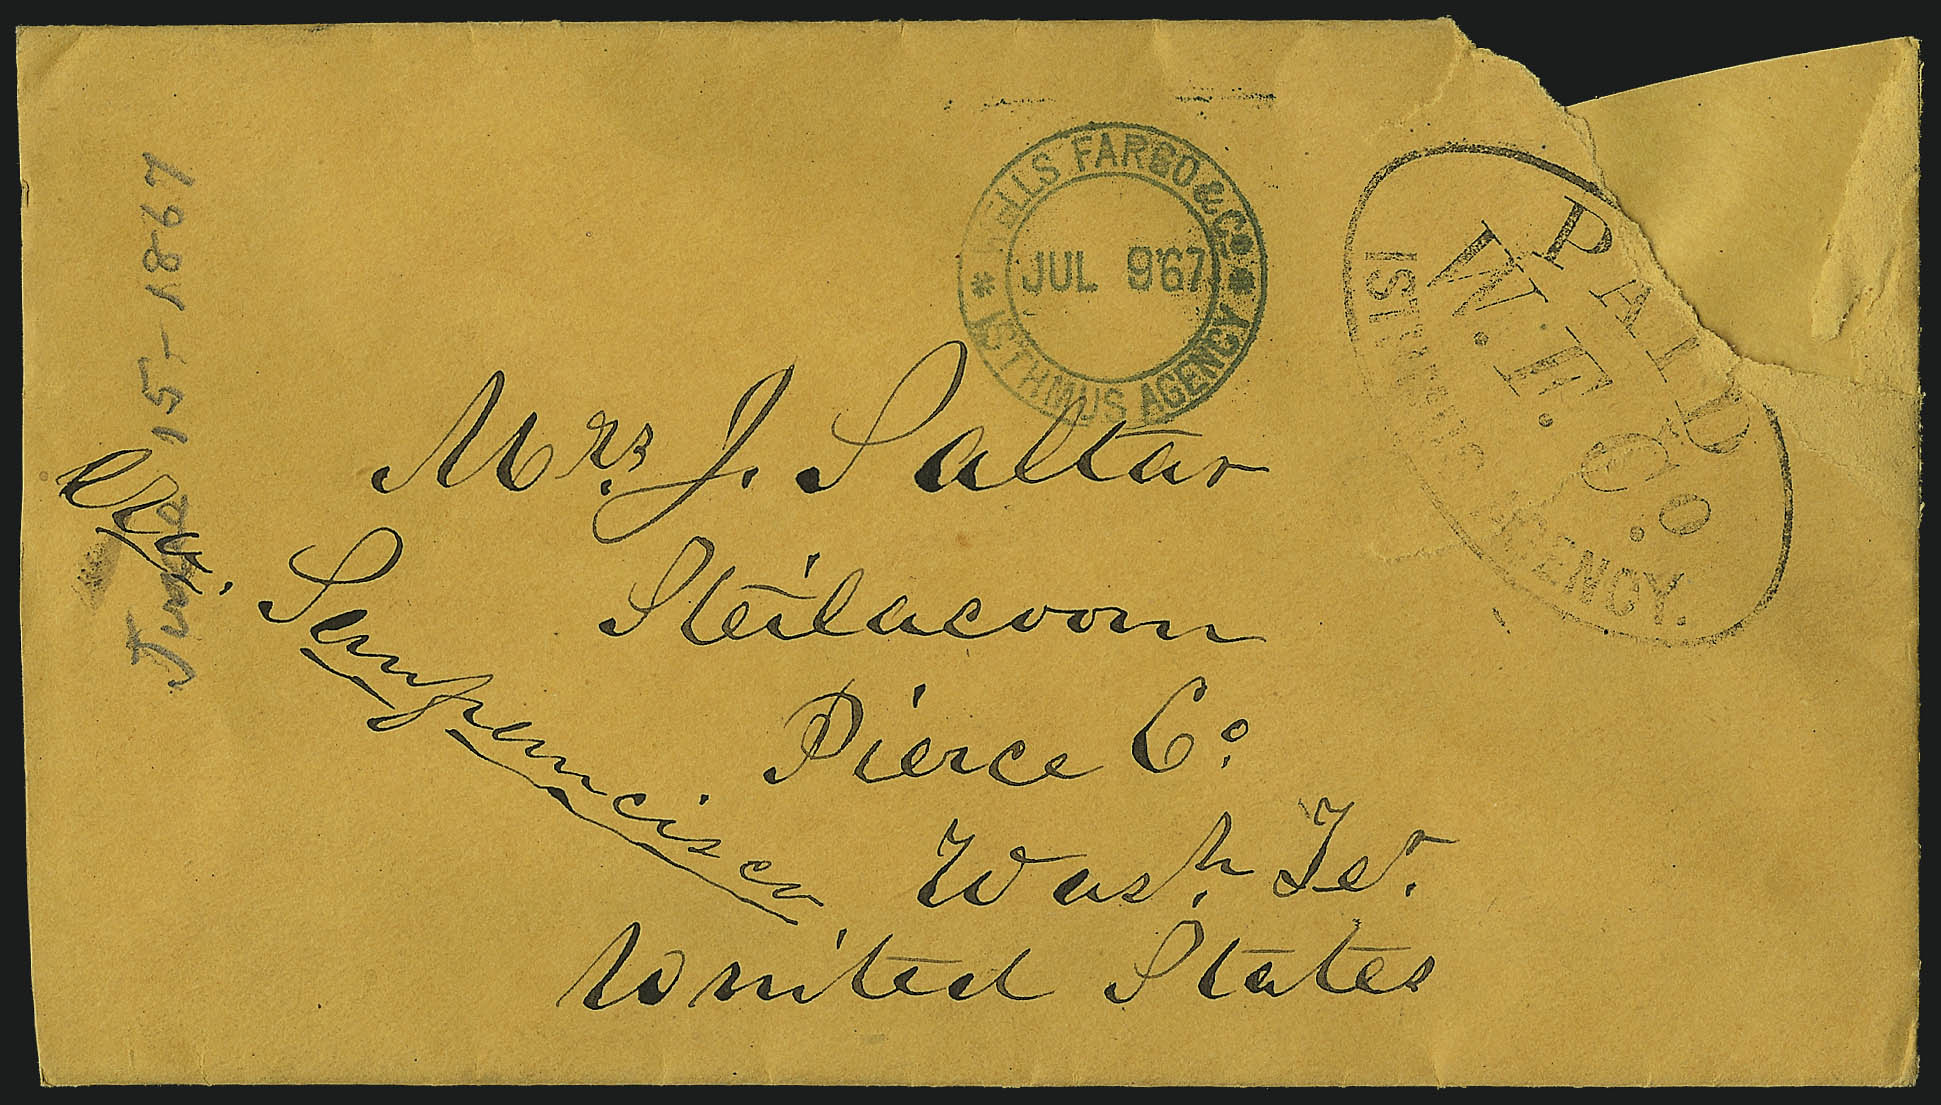 WELLS FARGO & Co.
* JUL 9 '67 *
ISTHMUS AGENCY
PAID
W. F. Co.
ISTHMUS AGENCY.
June 15-1867
Mrs. J. Saltar
Steilacoom
Pierce Co.
Wash. Ter.
United States